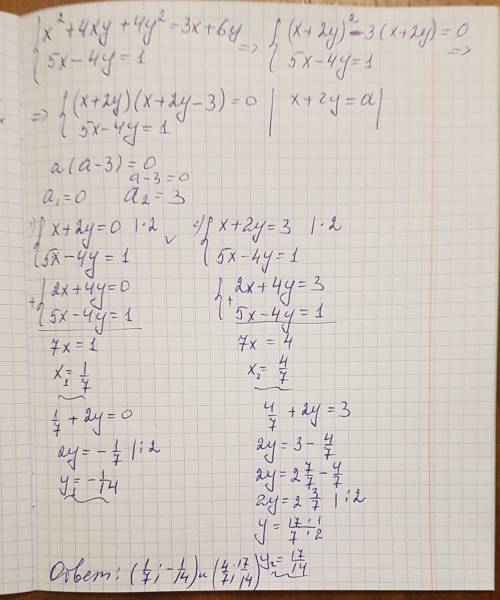 { x² + 4xy + 4y² = 3x + 6y => { (x + 2y)² - 3(x + 2y) = 0 =>
{ 5x - 4y = 1 { 5x - 4y = 1
=> { (x + 2y)(x + 2y - 3) = 0 | x + 2y = a |
{ 5x - 4y = 1
a(a - 3) = 0
a - 3 = 0
a₁ = 0 a₂ = 3
1) { x + 2y = 0 | · 2
{ 5x - 4y = 1
+ { 2x + 4y = 0
{ 5x - 4y = 1
7x = 1
x₁ = 1/7
1/7 + 2y = 0
2y = - 1/7 | : 2
y₁ = - 1/14
2) { x + 2y = 3 | · 2
{ 5x - 4y = 1
{ + 2x + 4y = 3
5x - 4y = 1
7x = 4
x₂ = 4/7
4/7 + 2y = 3
2y = 3 - 4/7
2y = 2 7/7 - 4/7
2y = 2 3/7 | : 2
y = 17/7 · 1/2
y₂ = 17/14
Ответ: (1/7 ; - 1/14) и (4/7 ; 17/14)